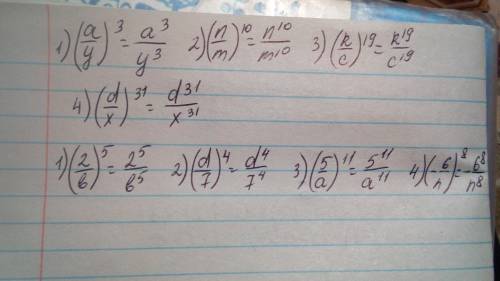 1) (a/y)^3 = a^3/y^3 2) (n/m)^10 = n^10/m^10 3) (k/c)^19 = k^19/c^19
4) (d/x)^31 = d^31/x^31
1) (2/b)^5 = 2^5/b^5 2) (d/7)^4 = d^4/7^4 3) (5/a)^11 = 5^11/a^11 4) (-6/n)^8 = 6^8/n^8